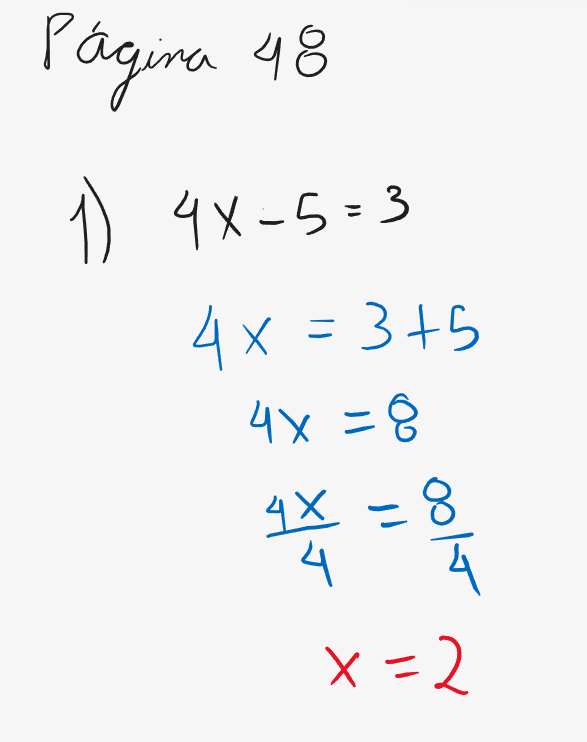 Página 48
1) 4x - 5 = 3
4x = 3 + 5
4x = 8
4x/4 = 8/4
x = 2